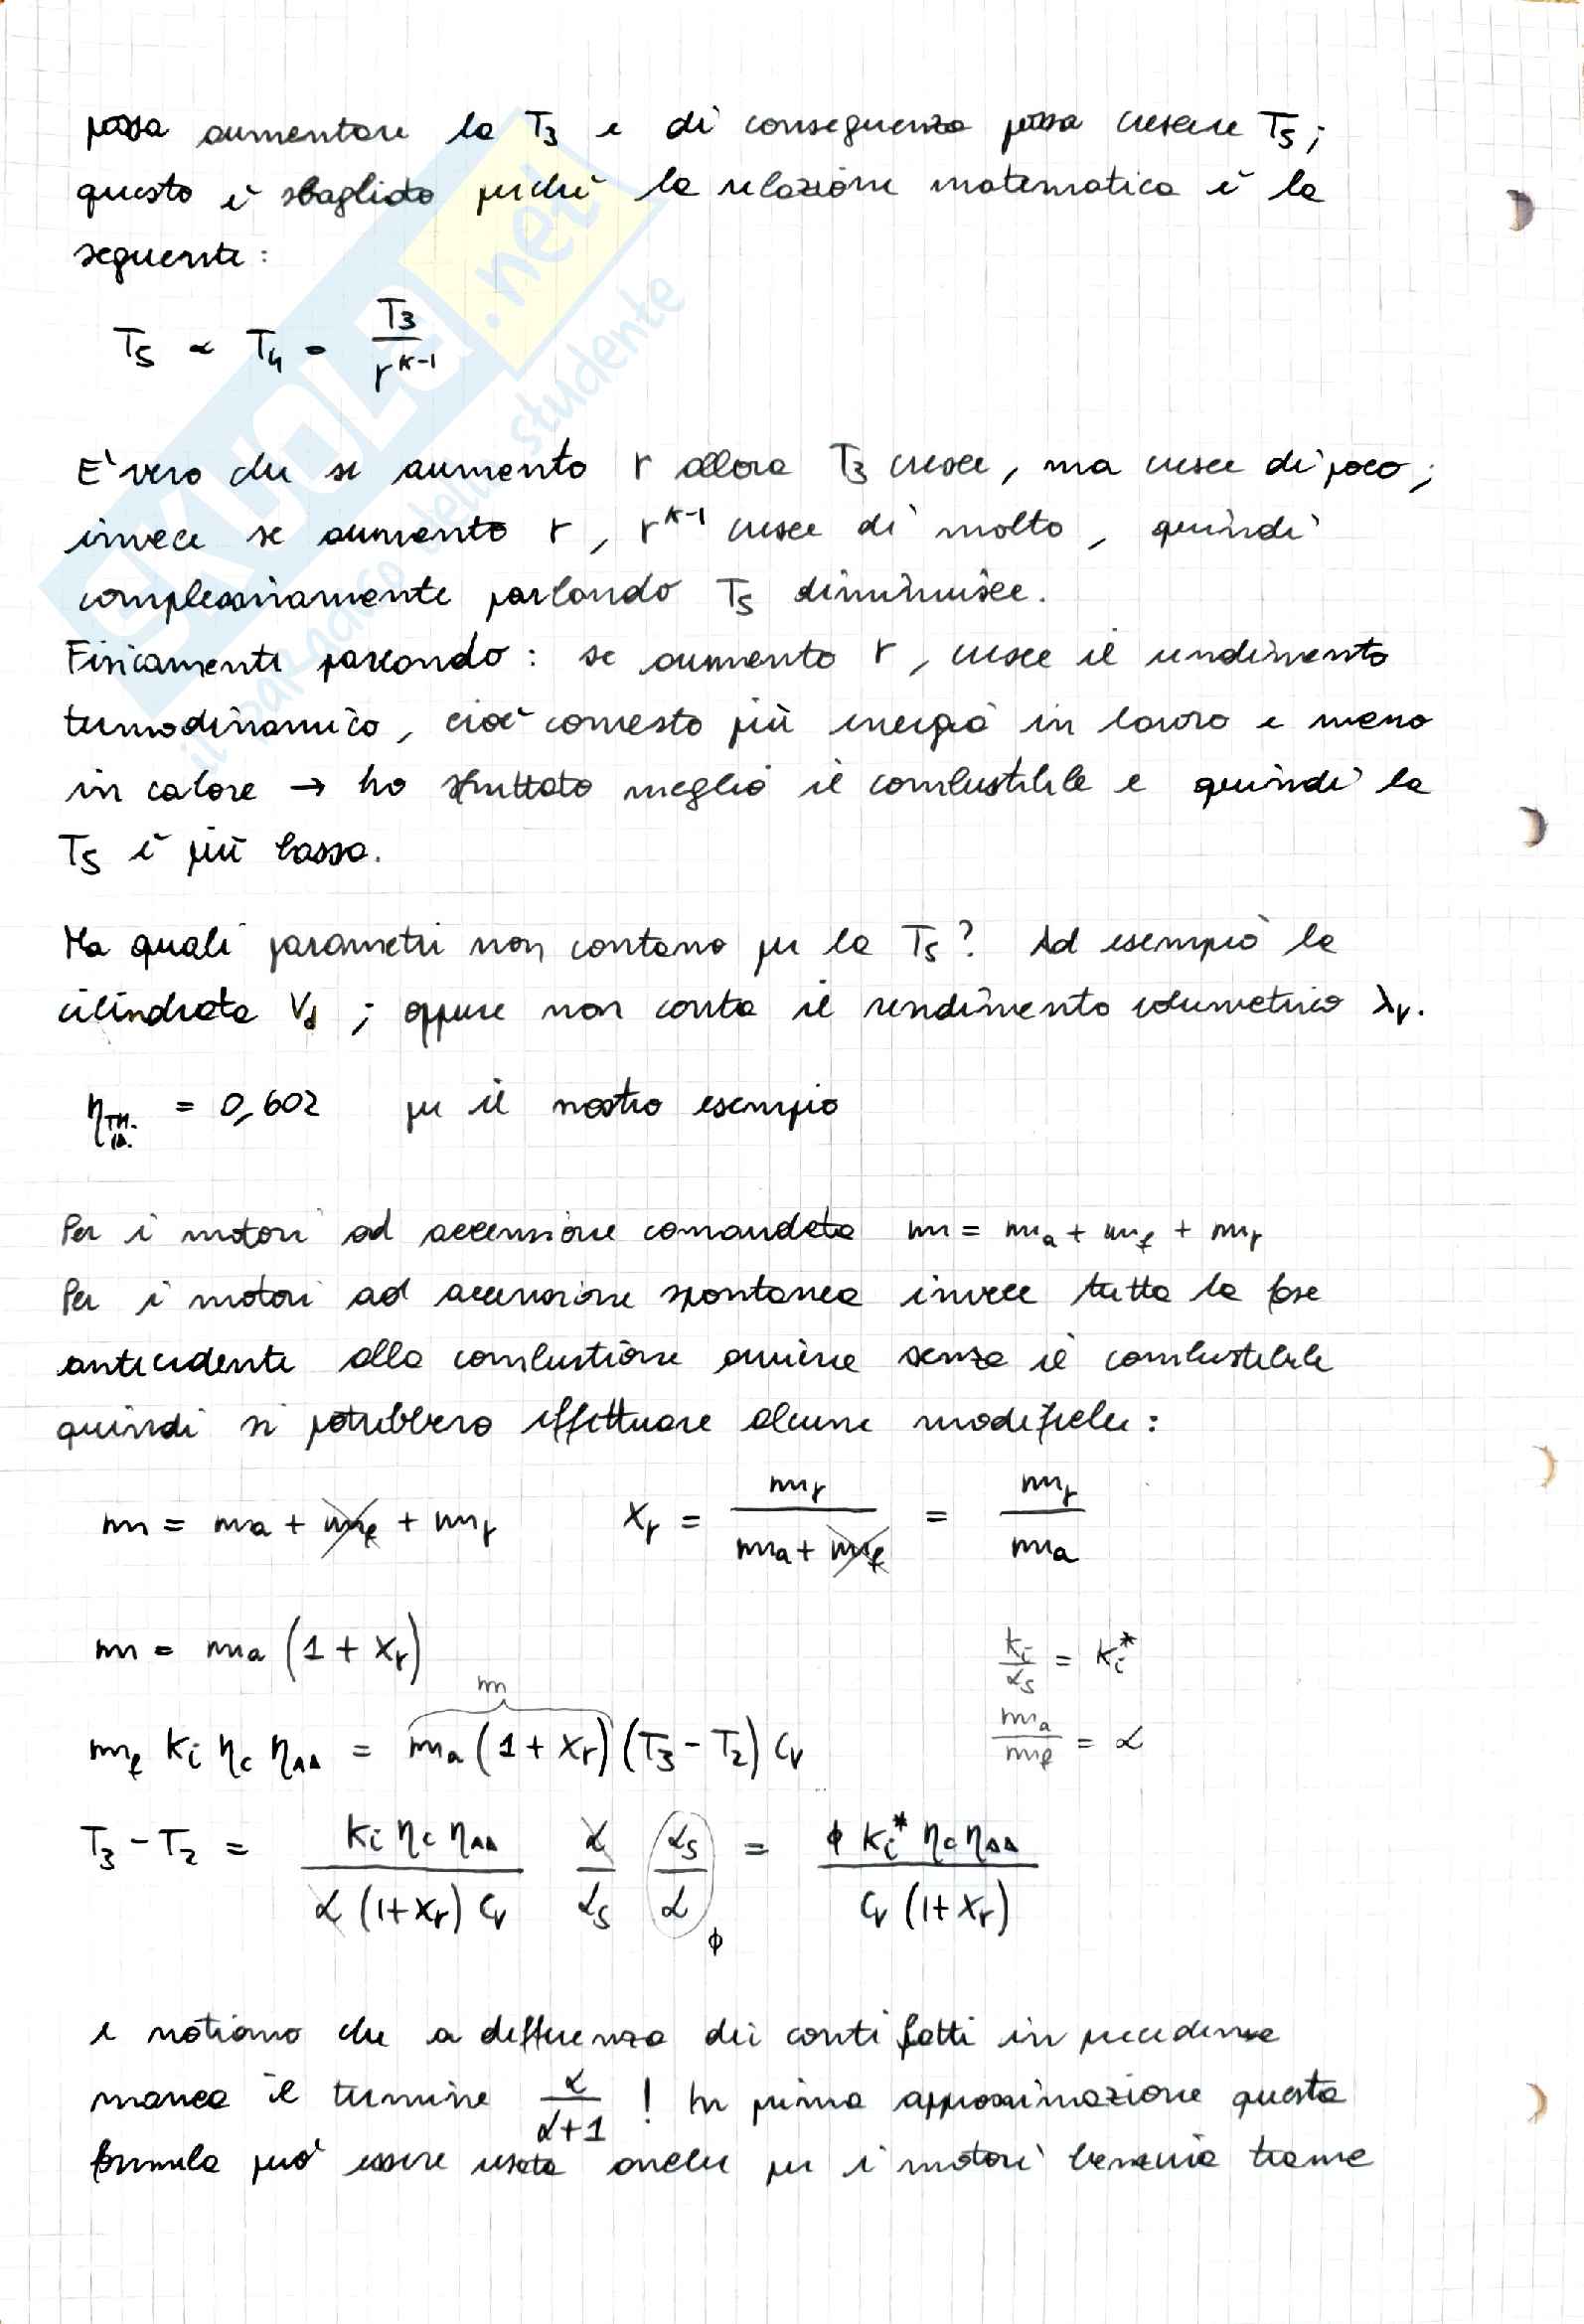 possa aumentare la T3 e di conseguenza possa crescere T5;
questo è sbagliato perché la relazione matematica è la
seguente:
T5 ∝ T4 = T3 / r^(k-1)
E' vero che se aumento r allora T3 cresce, ma cresce di poco;
invece se aumento r, r^(k-1) cresce di molto, quindi
complessivamente parlando T5 diminuisce.
Fisicamente parlando: se aumento r, cresce il rendimento
termodinamico, cioè converto più energia in lavoro e meno
in calore → ho sfruttato meglio il combustibile e quindi la
T5 è più bassa.
Ma quali parametri non contano per la T5? Ad esempio la
cilindrata Vd; oppure non conta il rendimento volumetrico λv.
ηTH. ID. = 0,602 per il nostro esempio
Per i motori ad accensione comandata m = ma + mf + mr
Per i motori ad accensione spontanea invece tutta la fase
antecedente alla combustione avviene senza il combustibile
quindi si potrebbero effettuare alcune modifiche:
m = ma + mf + mr   xr = mr / (ma + mf) = mr / ma
m = ma (1 + xr)   ki / αs = ki*
m
mf ki ηc ηΔΔ = ma (1 + xr) (T3 - T2) cv   ma / mf = α
T3 - T2 = ki ηc ηΔΔ / (α (1+xr) cv) α/αs αs/α = ϕ ki* ηc ηΔΔ / (cv (1+xr))
ϕ
e notiamo che a differenza dei conti fatti in precedenza
manca il termine α / (α+1) ! In prima approssimazione questa
formula può essere usata anche per i motori benzina tranne
SKUOLA.net
il paradiso dello studente